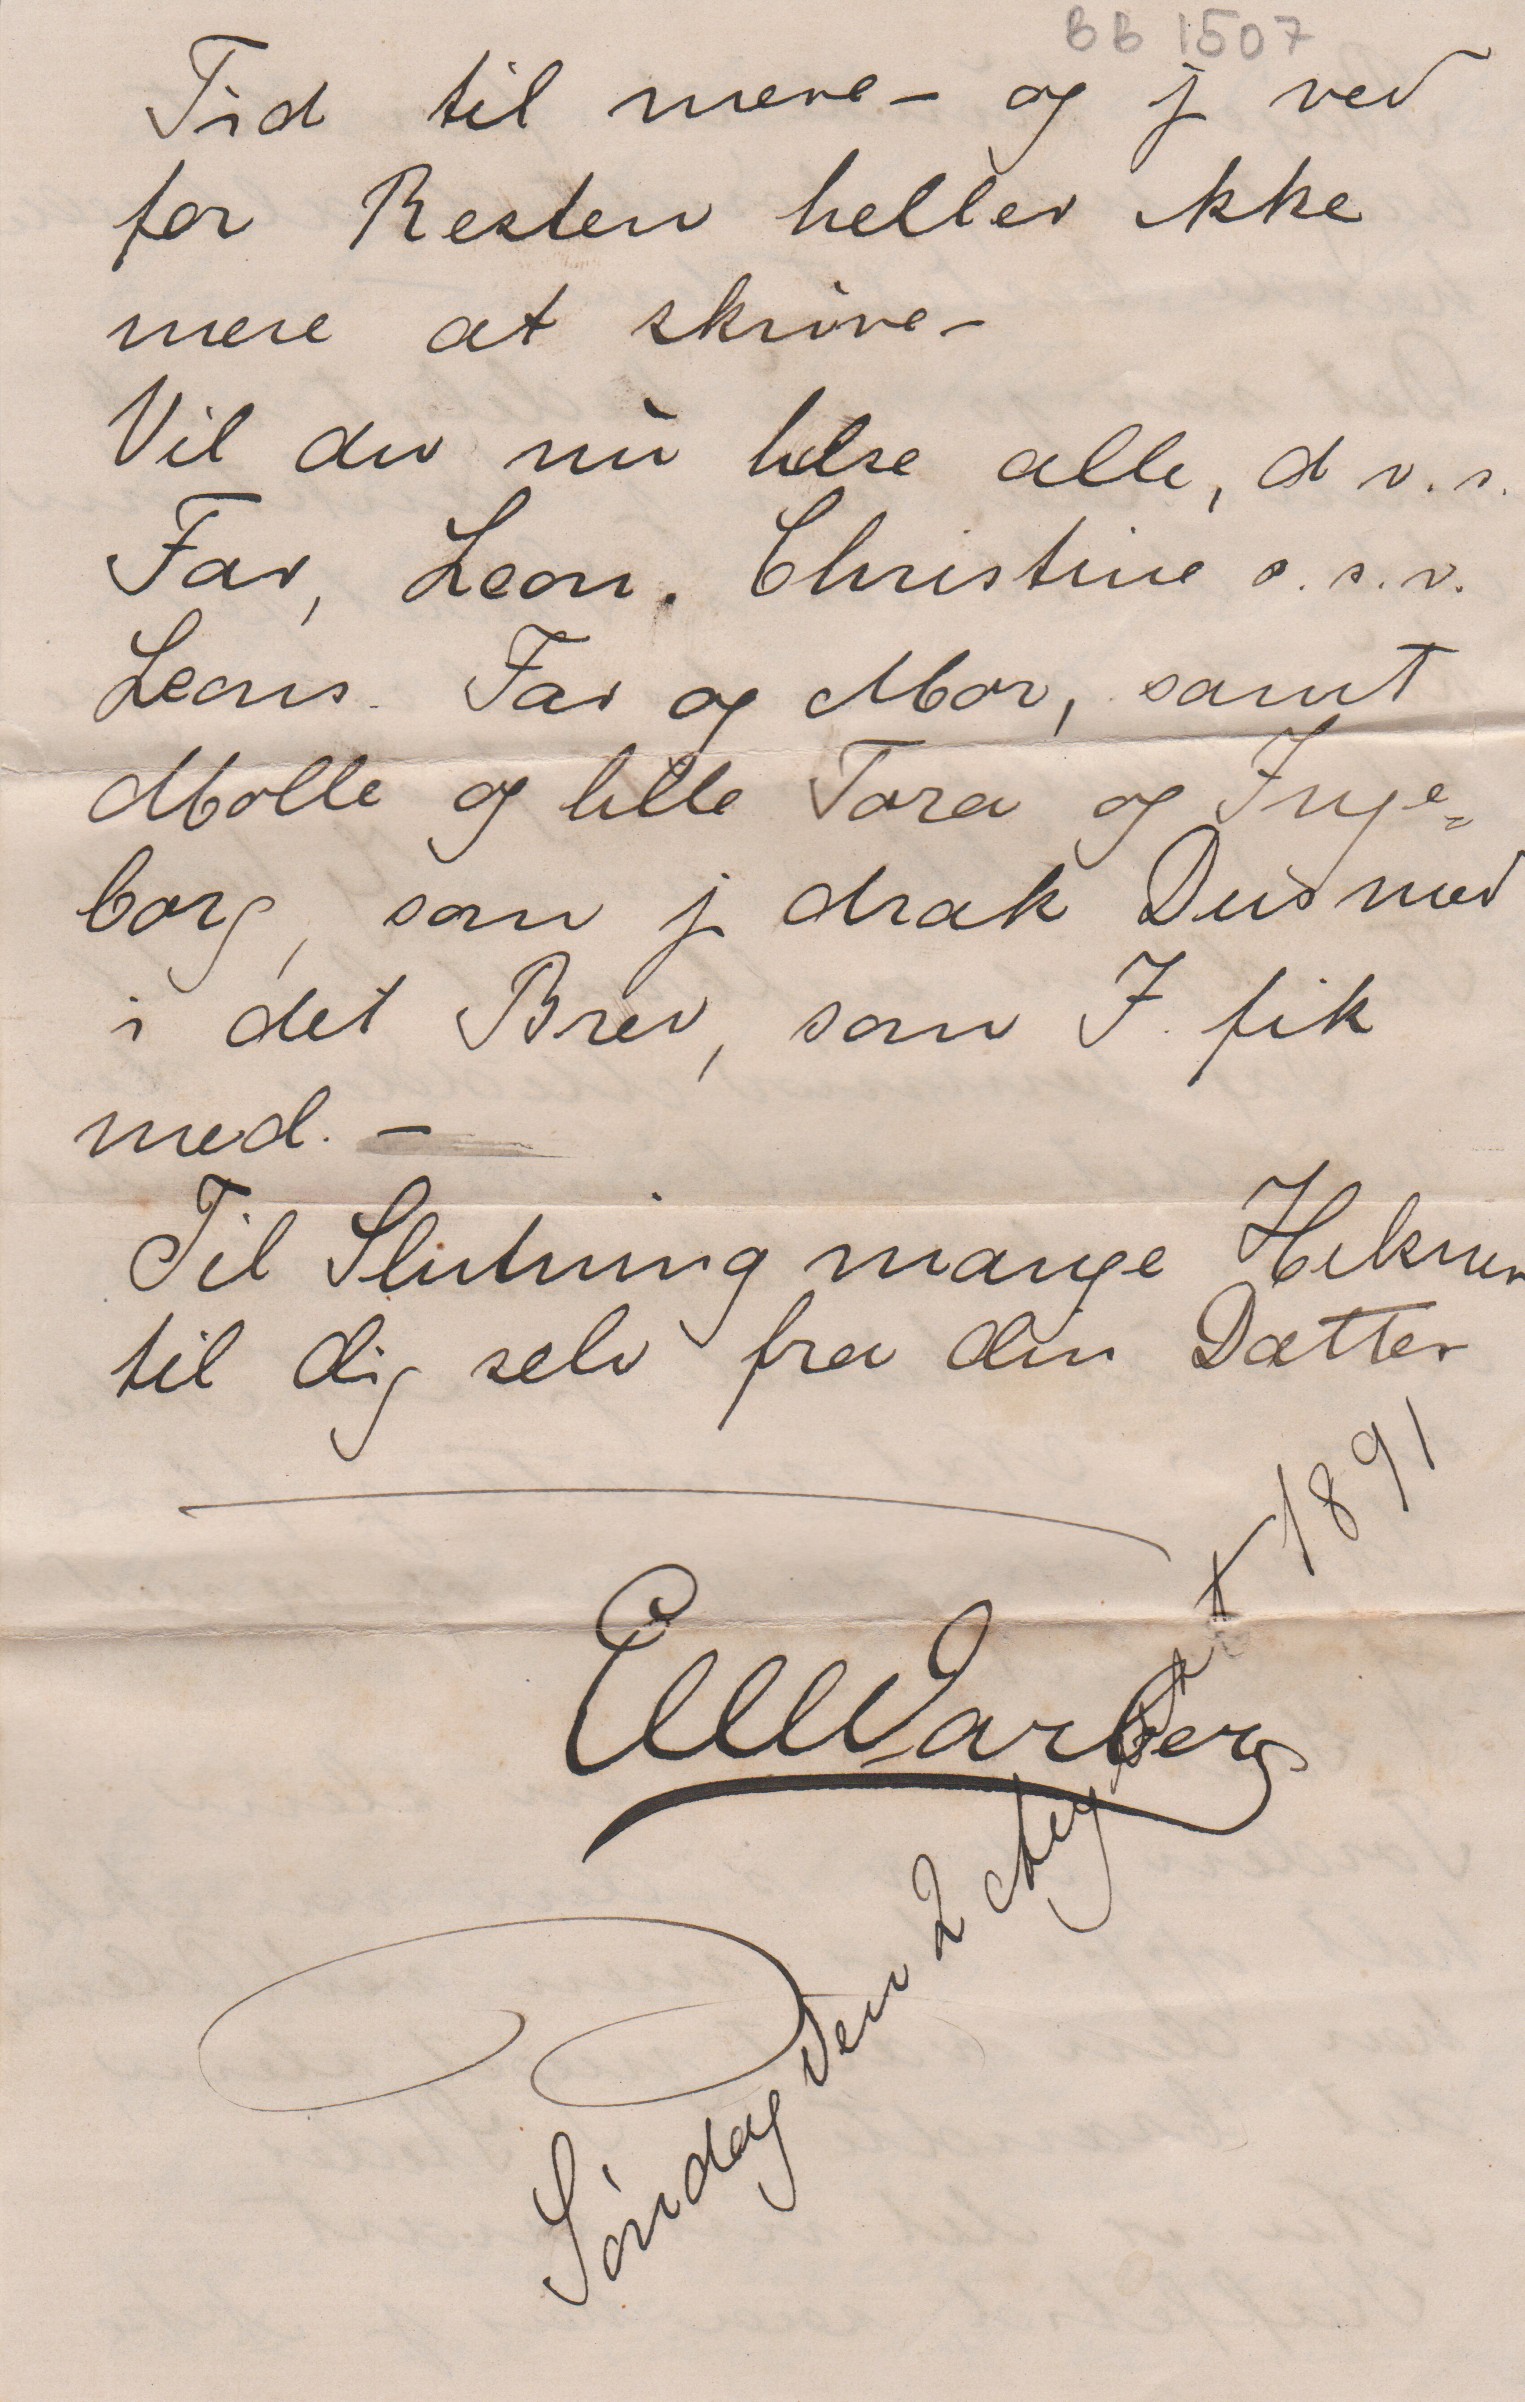 BB 1507
Tid til mere – og j ved
for Resten heller ikke
mere at skrive –
Vil du nu hilse alle, d v. s.
Far, Leon. Christine o. s. v.
Leons Far og Mor, samt
Molle og lille Tora og Inge=
borg, som j drak Dus med
i det Brev, som I. fik
med. –
Til Slutning mange Hilsner
til dig selv fra din Datter
Ell Warberg
Søndag den 2 Aug 1891